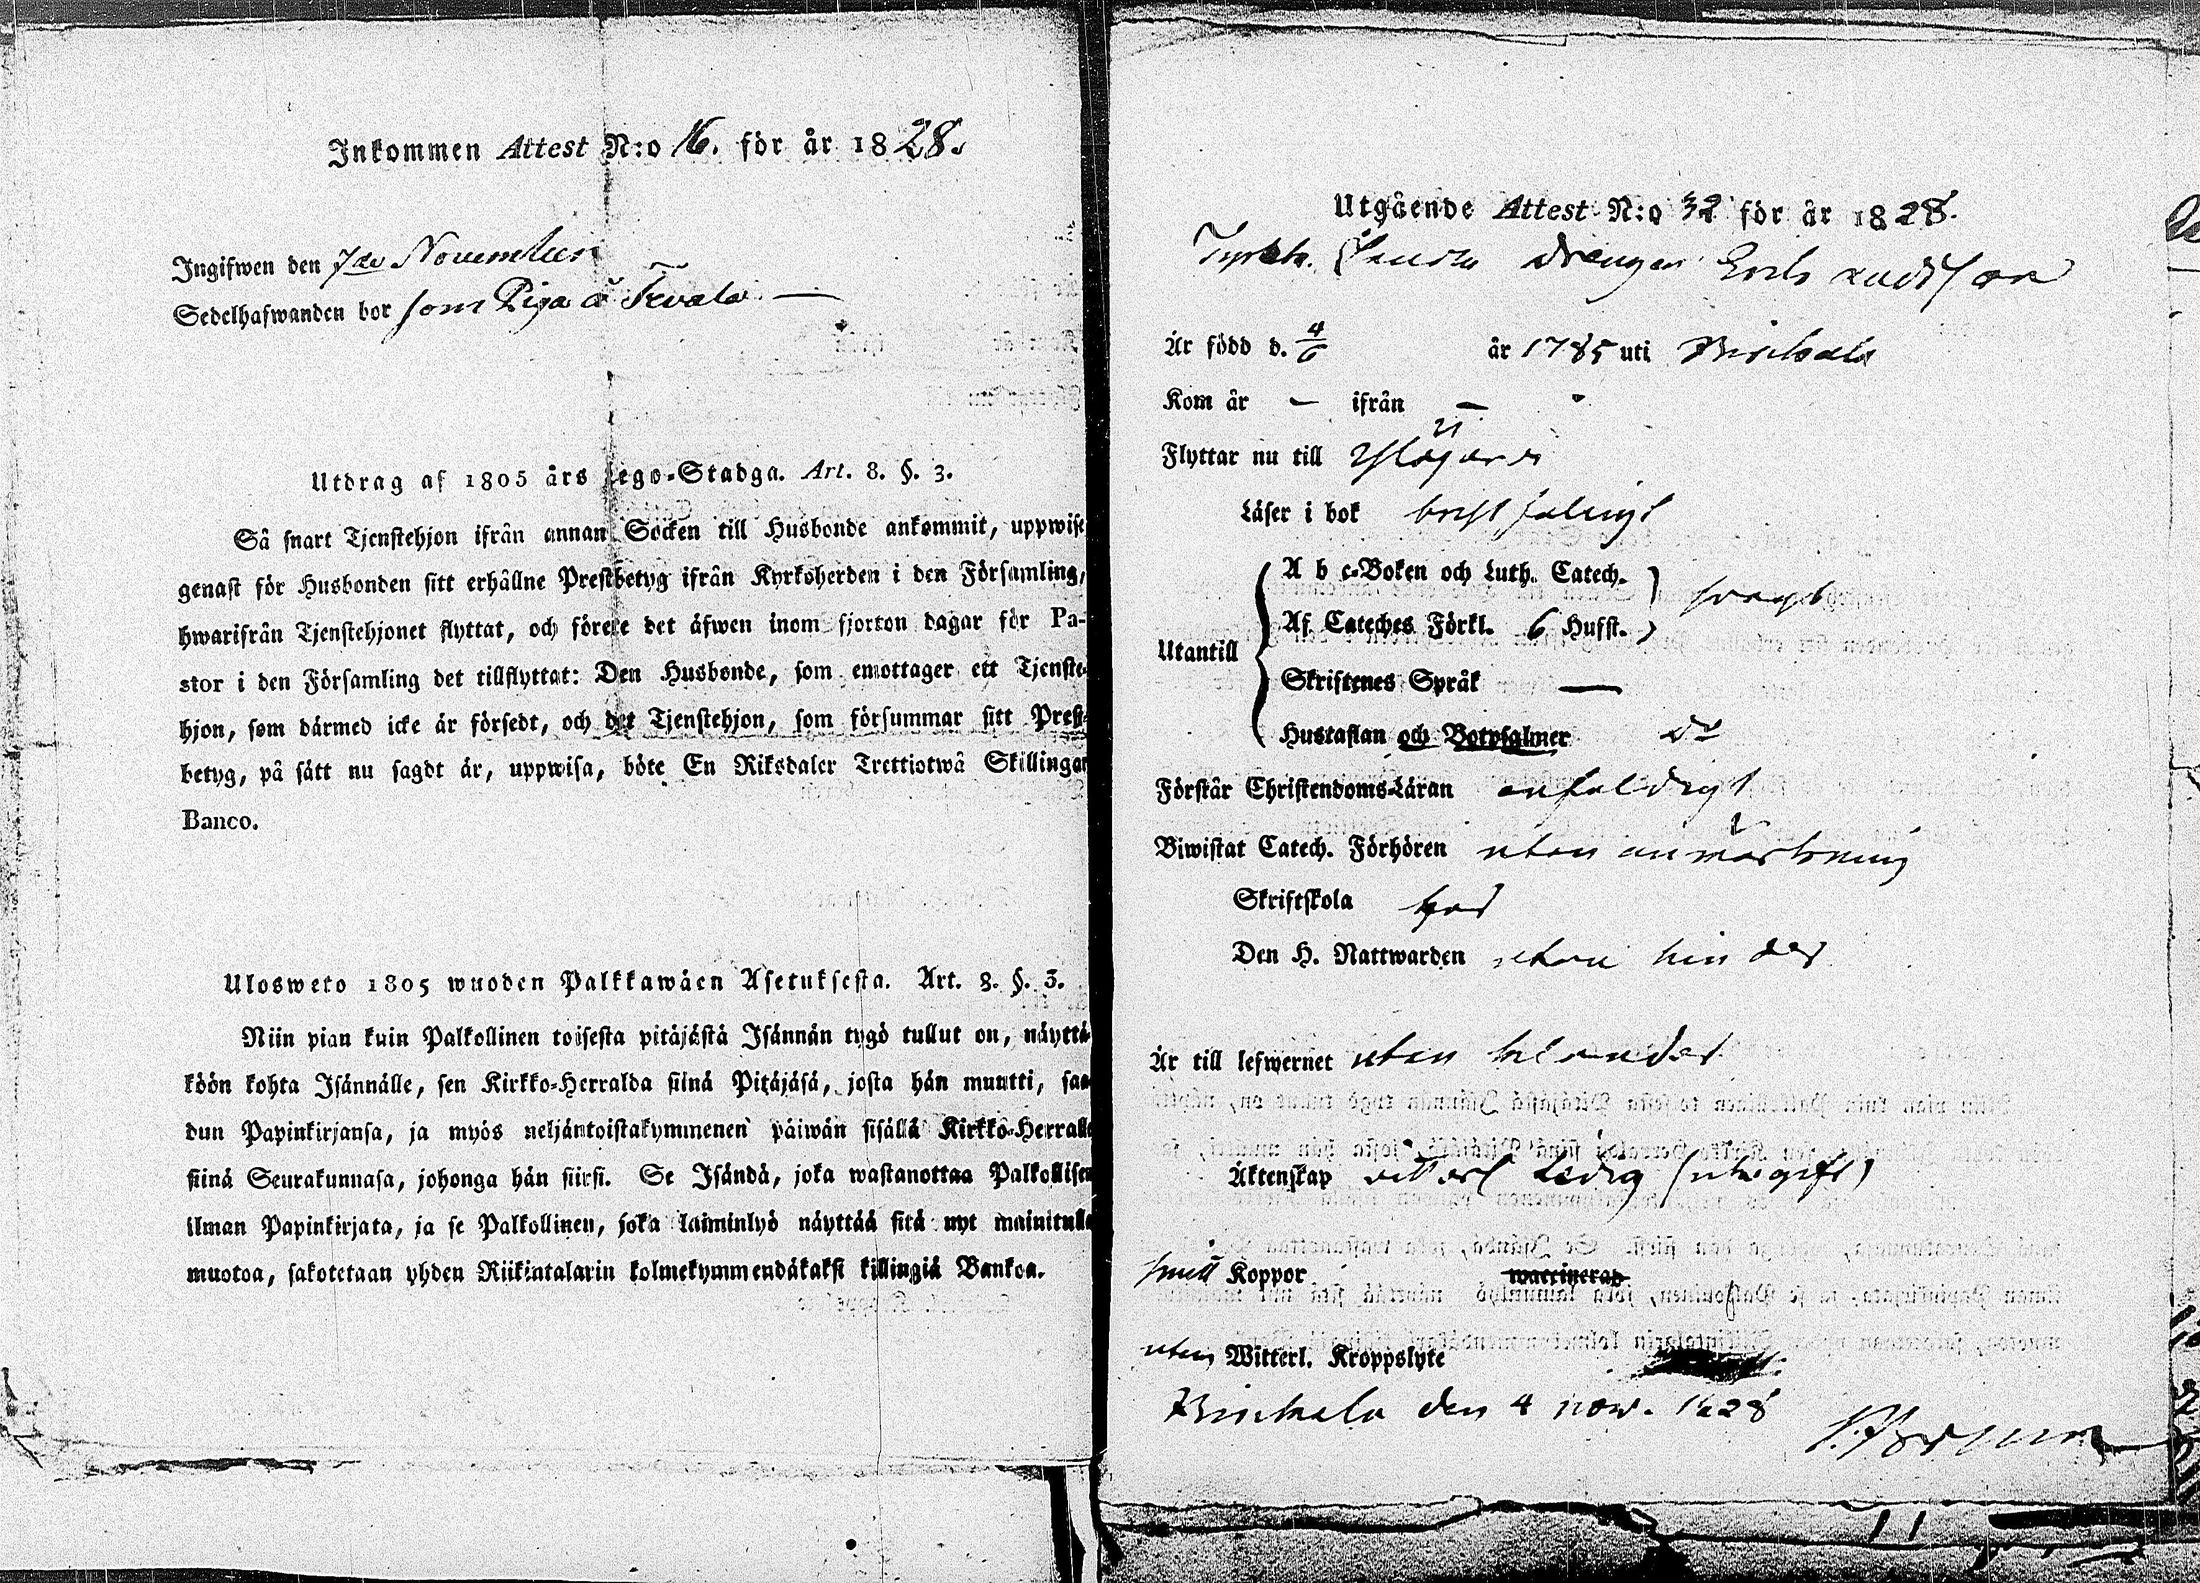 Inkommen Attest N:o 16. för år 1828.
Ingifwen den 7de November
Sedelhafwanden bor som Piga å
Utdrag af 1805 års Lego-Stadga. Art. 8. §. 3.
Så snart Tjenstehjon ifrån annan Socken till Husbonde ankommit, uppwise
genast för Husbonden sitt erhållne Prestbetyg ifrån Kyrkoherden i den Församling,
hwarifrån Tjenstehjonet flyttat, och förete det äfwen inom fjorton dagar för Pa-
stor i den Församling det tillflyttat: Den Husbonde, som emottager ett Tjenste-
hjon, som därmed icke är försedt, och det Tjenstehjon, som försummar sitt Prest-
betyg, på sätt nu sagdt är, uppwisa, böte En Riksdaler Trettiotwå Skillingar
Banco.
Ulosweto 1805 wuoden Palkkawäen Asetuksesta. Art. 8. §. 3.
Niin pian kuin Palkollinen toisesta pitäjästä Isännän tygö tullut on, näyttä-
köön kohta Isännälle, sen Kirkko-Herralda siinä Pitäjäsä, josta hän muutti, saa
dun Papinkirjansa, ja myös neljäntoistakymmenen päiwän sisällä Kirkko-Herralle
siinä Seurakunnasa, johonga hän siirsi. Se Isändä, joka wastanottaa Palkollisen
ilman Papinkirjata, ja se Palkollinen, joka laiminlyö näyttää sitä nyt mainitulla
muotoa, sakotetaan yhden Riikintalarin kolmekymmendäkaksi killingiä Bankoa.
Utgående Attest N:o 32 för år 1828.
drengen Eriks
Är född d. 4/6 år 1785 uti Birckala
Kom år — ifrån —
Flyttar nu till Ylöjärvi
Läser i bok bristfäligt
Utantill
A b c-Boken och Luth. Catech.
Af Cateches Förkl. 6 Hufst.
svagt
Skriftenes Språk —
Hustaflan och Botpsalmer do
Förstår Christendoms-Läran enfaldigt
Biwistat Catech. Förhören utan anmärkning
Skriftskola
Den H. Nattwarden utan hinder
Är till lefwernet utan klander
Äktenskap ledig
haft Koppor waccinerad
utan Witterl. Kroppslyte
Birckala den 4 nov. 1828